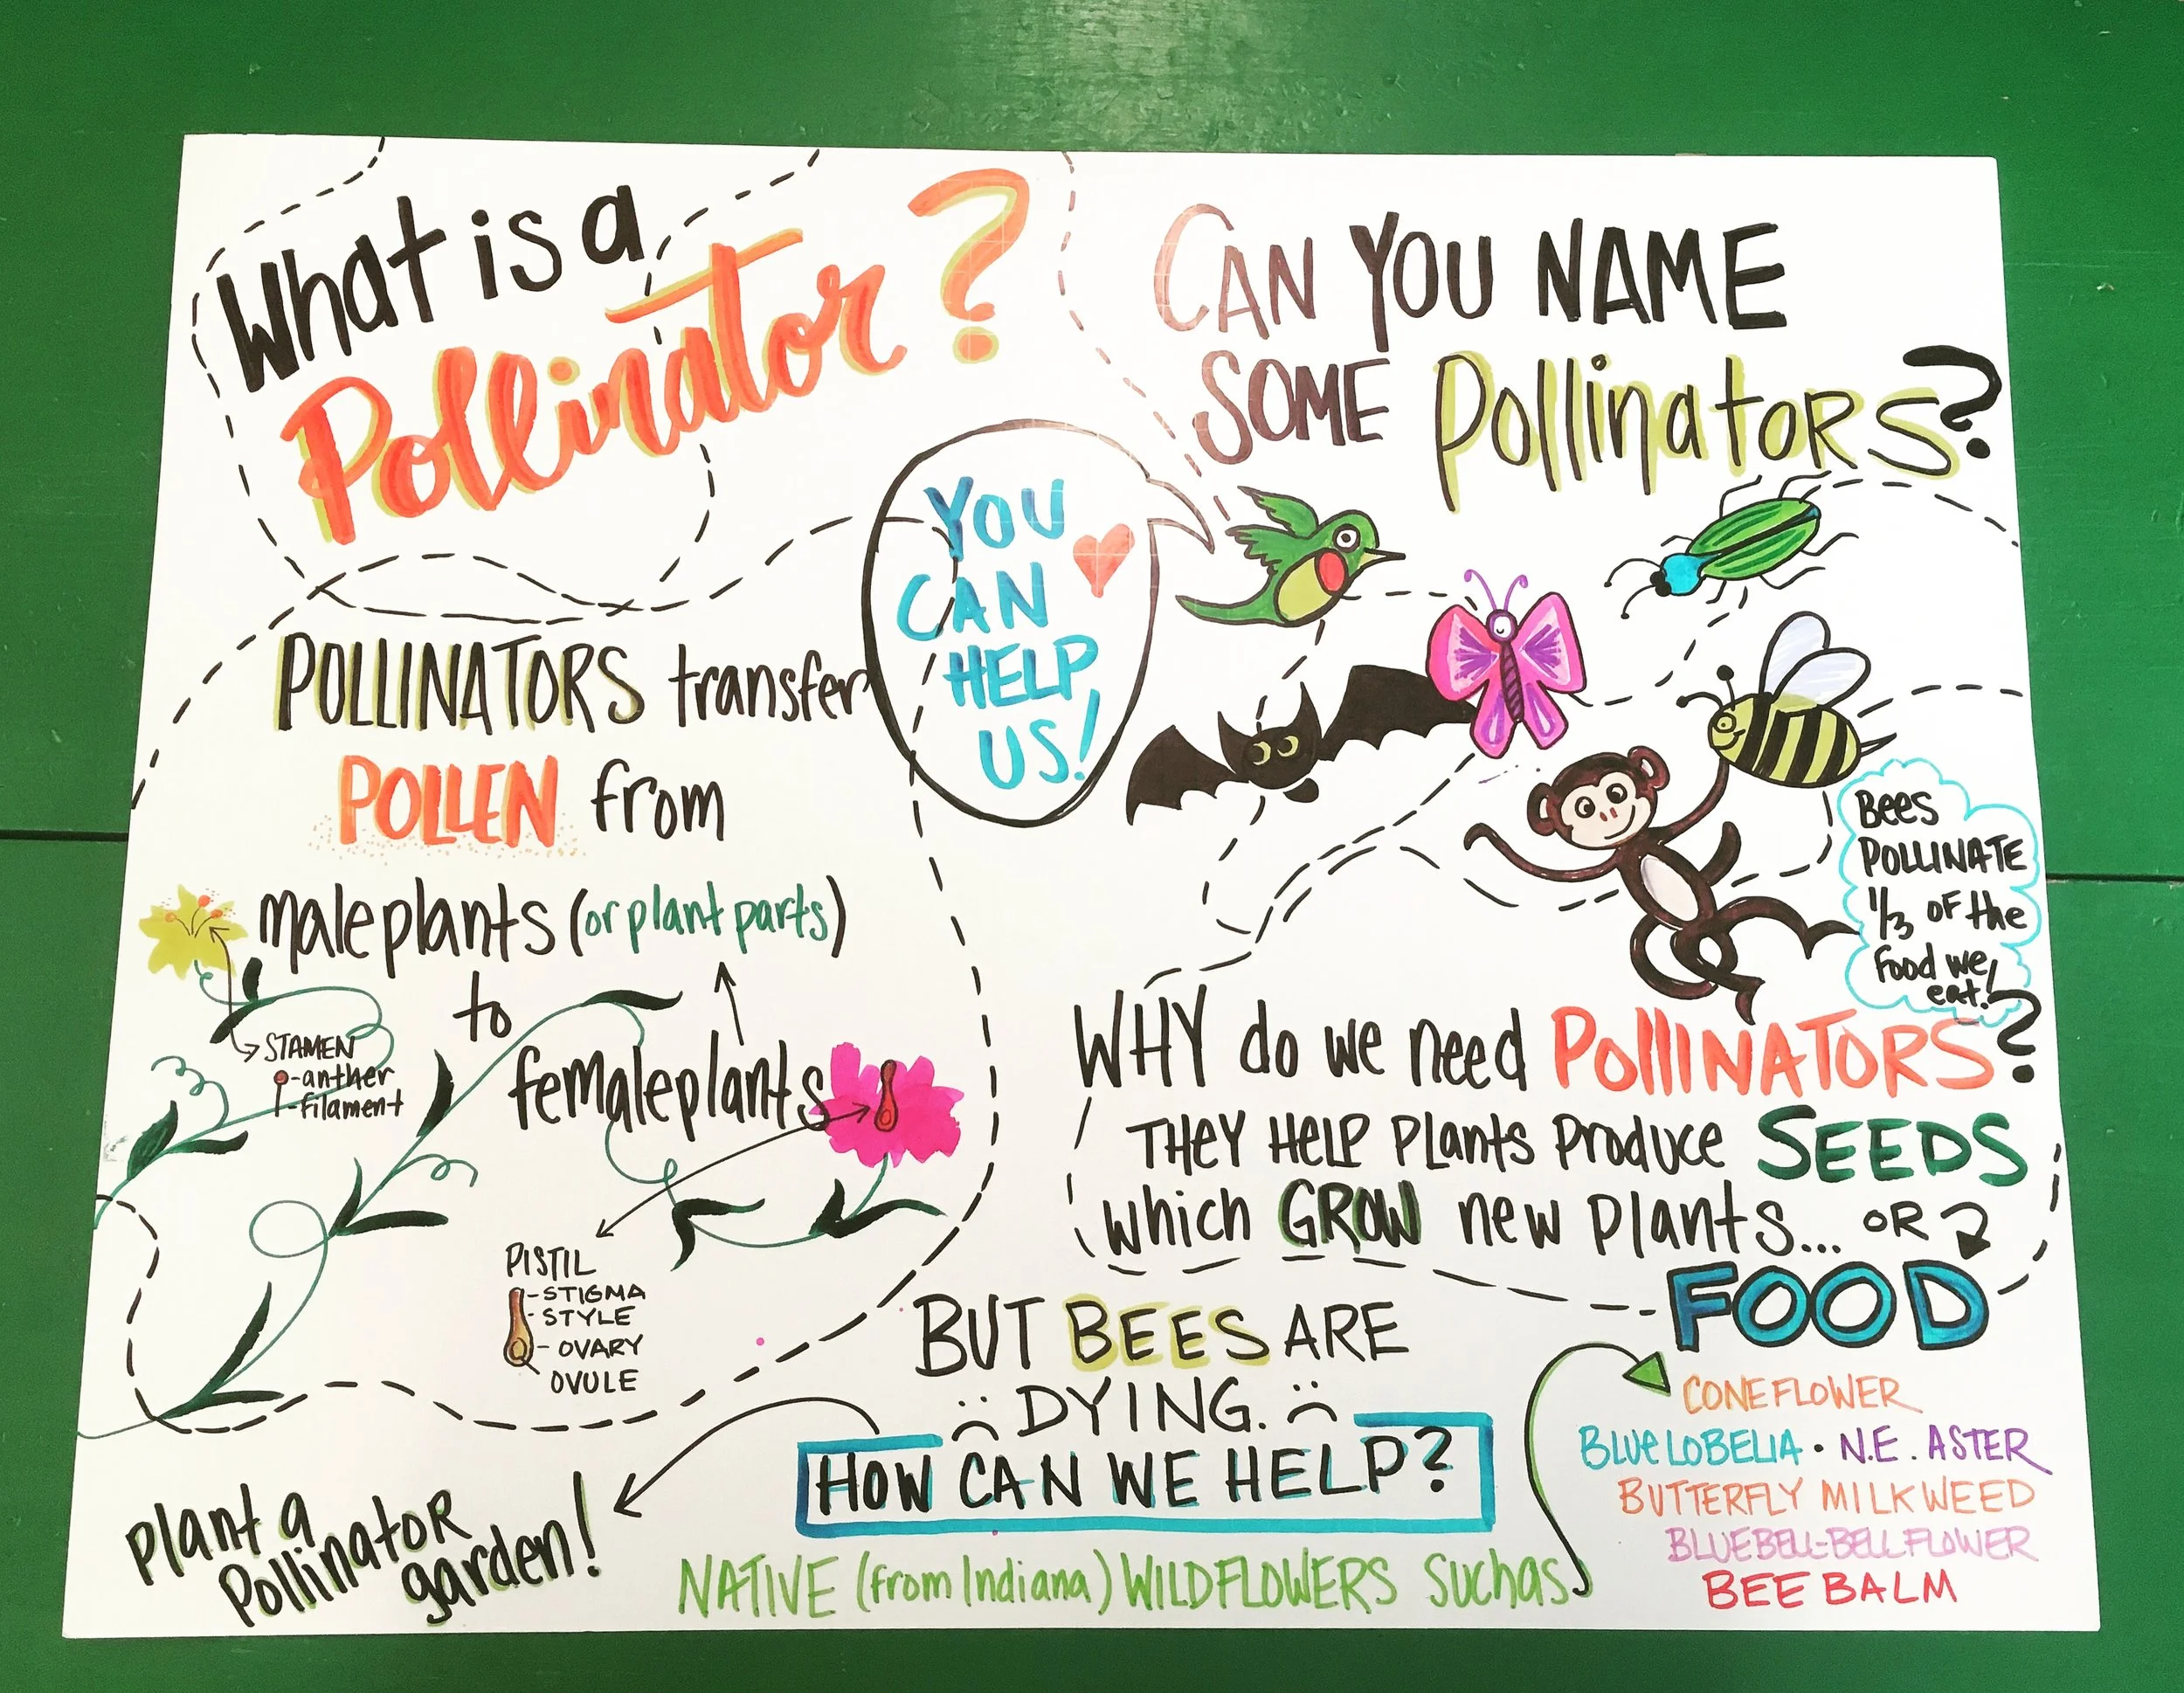 What is a
Pollinator?
POLLINATORS transfer
POLLEN from
male plants (or plant parts)
to
female plants
STAMEN
-anther
-filament
PISTIL
-STIGMA
-STYLE
-OVARY
OVULE
YOU
CAN
HELP
US!
CAN YOU NAME
SOME Pollinators?
Bees
POLLINATE
1/3 OF the
Food we
eat!
WHY do we need POllINATORS?
THEY HELP PLants Produce SEEDS
which GROW new plants... OR
FOOD
BUT BEES ARE
DYING.
HOW CAN WE HELP?
Plant a
Pollinator
garden!
NATIVE (from Indiana) WILDFLOWERS Such as
CONEFLOWER
BLUE LOBELIA • N.E. ASTER
BUTTERFLY MILKWEED
BLUEBELL-BELLFLOWER
BEE BALM